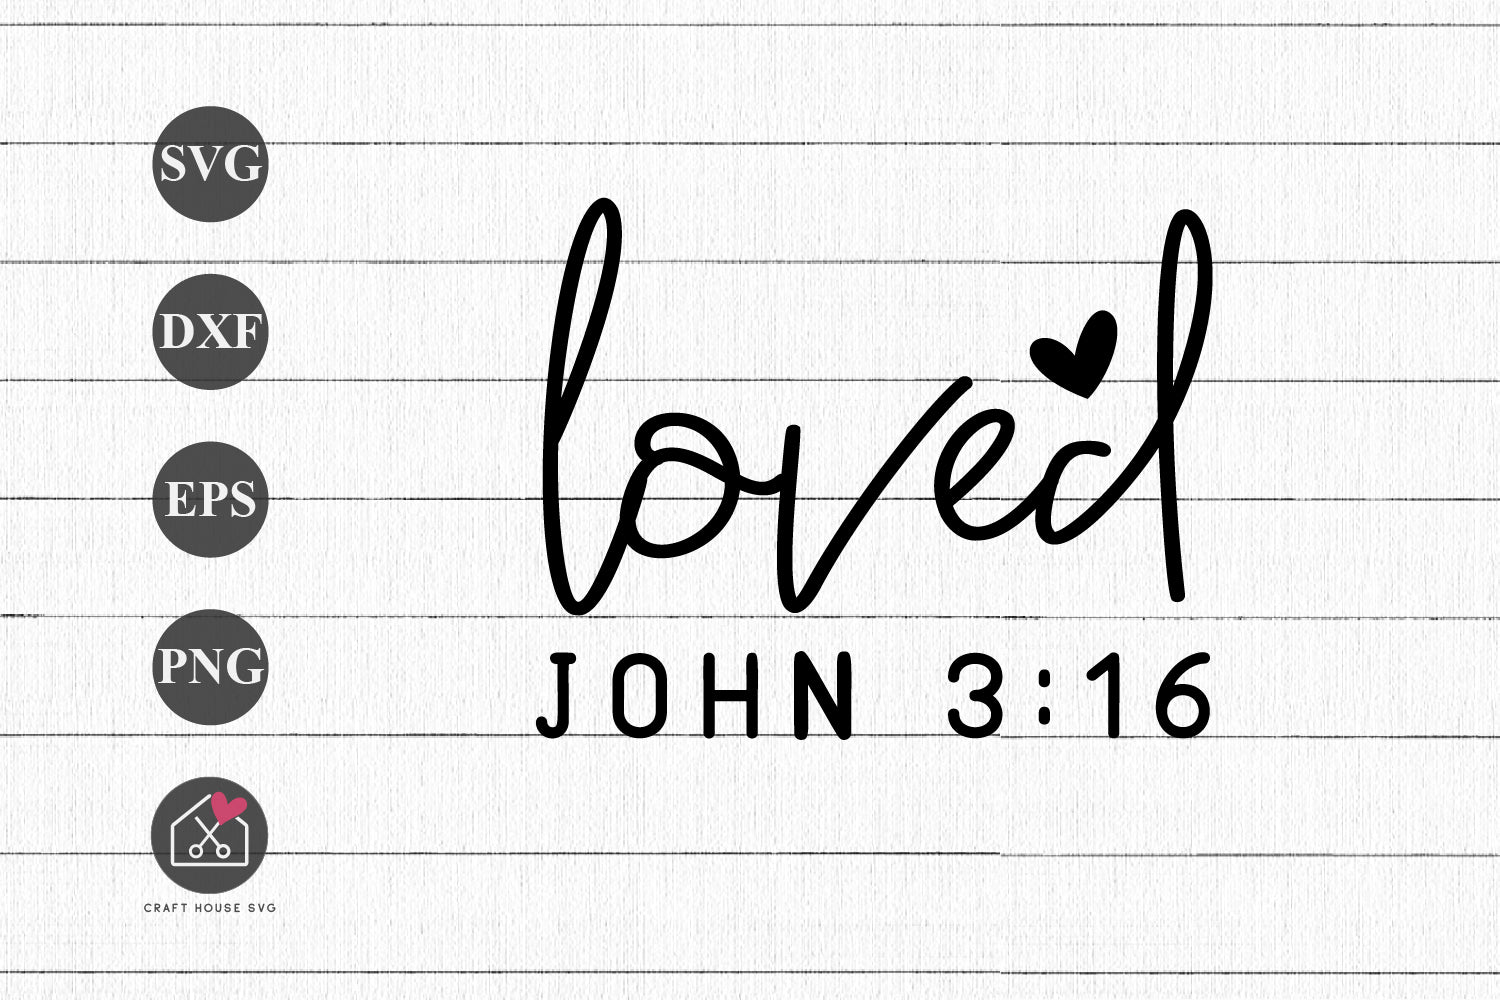 SVG
DXF
EPS
PNG
CRAFT HOUSE SVG
loved
JOHN 3:16